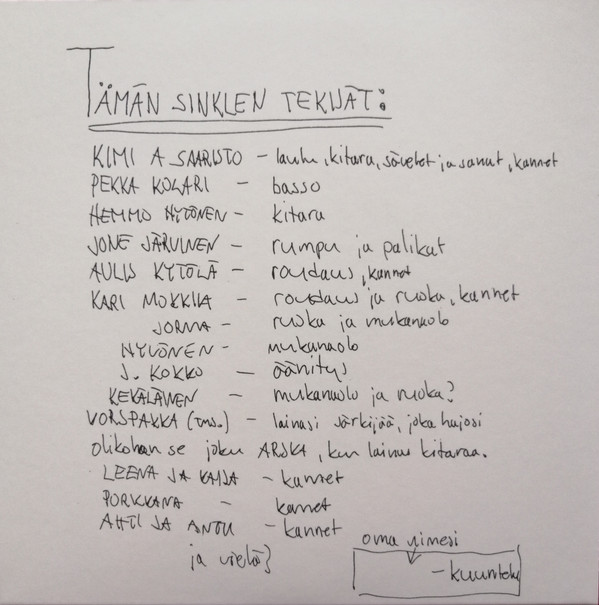 TÄMÄN SINKLEN TEKIJÄT:
KIMI A SAARISTO – laulu, kitara, sävelet ja sanat, kannet
PEKKA KOLARI – basso
HEMMO HYTÖNEN – kitara
JONE JÄRVINEN – rumpu ja palikat
AULIS KYTÖLÄ – roudaus, kannet
KARI MOKKILA – roudaus ja ruoka, kannet
JORMA – ruoka ja mukanaolo
HYVÖNEN – mukanaolo
J. KOKKO – äänitys
KEKÄLÄINEN – mukanaolo ja ruoka?
VORSPAKKA (TMS.) – lainasi särkijää, joka hajosi
olikohan se joku ARSKA, ken lainas kitaraa.
LEENA JA KAIJA – kannet
PORKKANA – kannet
AHTI JA ANTU – kannet
ja vielä}
oma nimesi
– kuuntelu